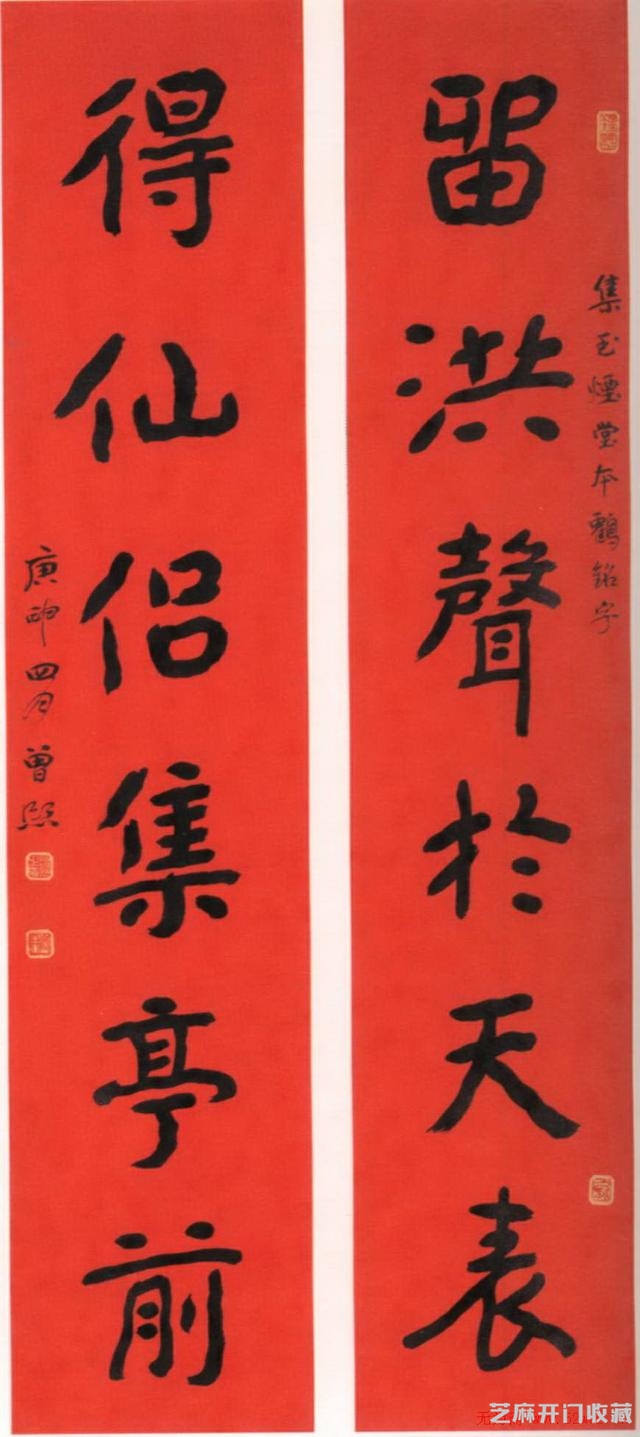 集玉煙堂本鶴銘字
留洪聲於天表
得仙侣集亭前
庚申四月曾熙
芝麻开门收藏